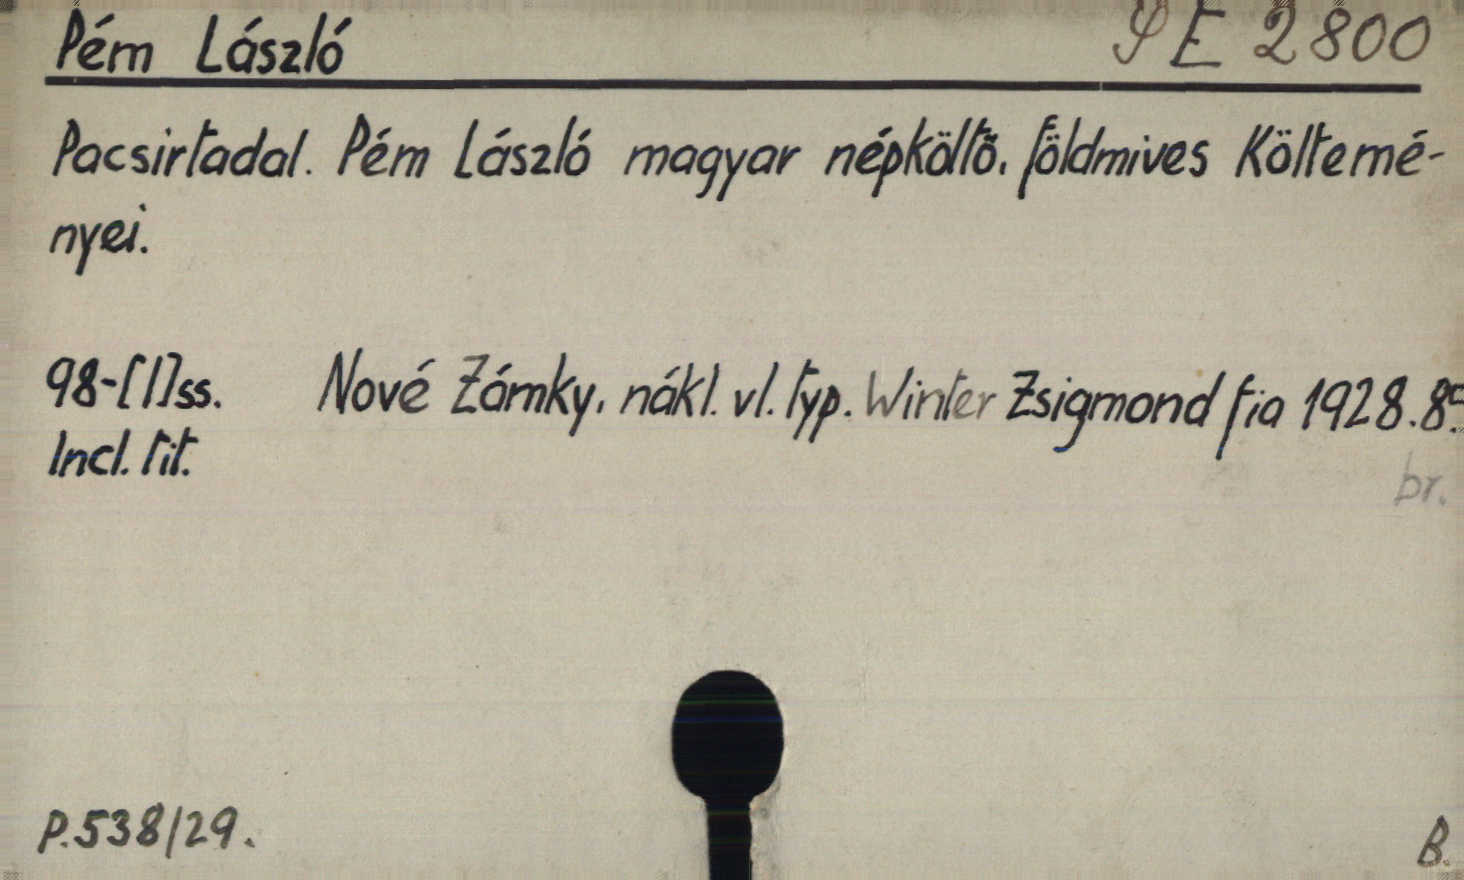 Pém László SE 2800
Pacsirtadal. Pém László magyar népköltő, földmives Költemé-
nyei.
98-[1]ss. Nové Zámky, nákl. vl. typ. Winter Zsigmond fia 1928. 8°.
Incl. tit.
br.
P.538/29.
B.